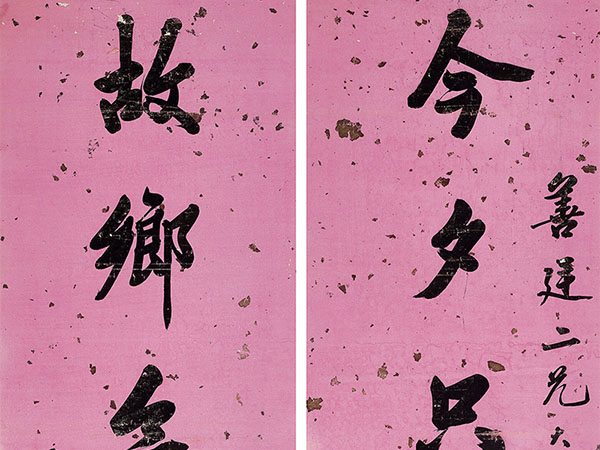 善廷二兄大
今夕只
故鄉